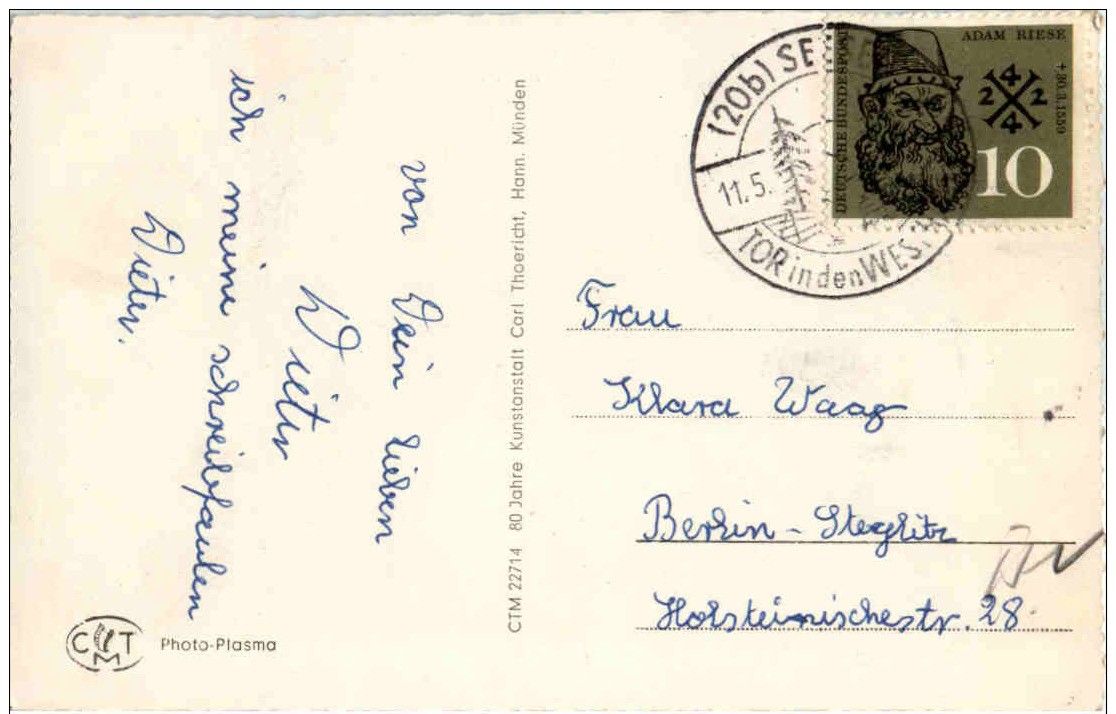 von Dein lieben
Dieter
ich meine schreibfaulen
Dieter.
Photo-Plasma
CTM 22714 80 Jahre Kunstanstalt Carl Thoericht, Hann. Münden
(20b)
11.5.
TOR in den
ADAM RIESE
+ 30.3.1559
DEUTSCHE BUNDESPOST
2 4 2
4
10
Frau
Klara Waag
Berlin-Steglitz
Holsteinischestr. 28